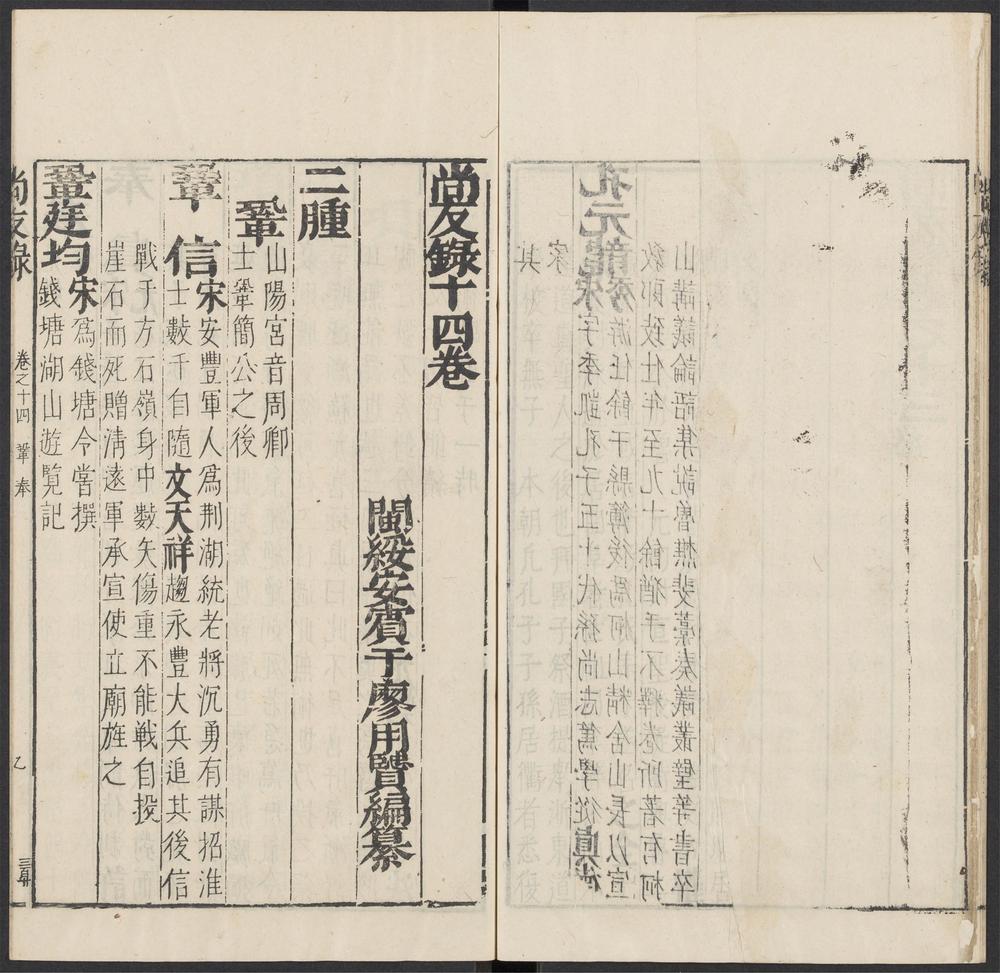 孔元龍宋字季凱孔子五十代孫尚志篤學從真德
秀游任餘干縣簿後爲柯山精舍山長以宣
教郎致仕年至九十餘猶手不釋卷所著有柯
山講議論語集說魯樵斐藁奏議叢璧等書卒
尚友錄十四卷
閩綏安賓于廖用賢編纂
二腫
鞏
山陽宮音周卿
士鞏簡公之後
鞏信宋安豐軍人爲荆湖統老將沉勇有謀招淮
士數千自隨文天祥趨永豐大兵追其後信
戰于方石嶺身中數矢傷重不能戰自投
崖石而死贈清遠軍承宣使立廟旌之
鞏廷均宋爲錢塘令嘗撰
錢塘湖山遊覽記
尚友錄
卷之十四 鞏 奉
乙